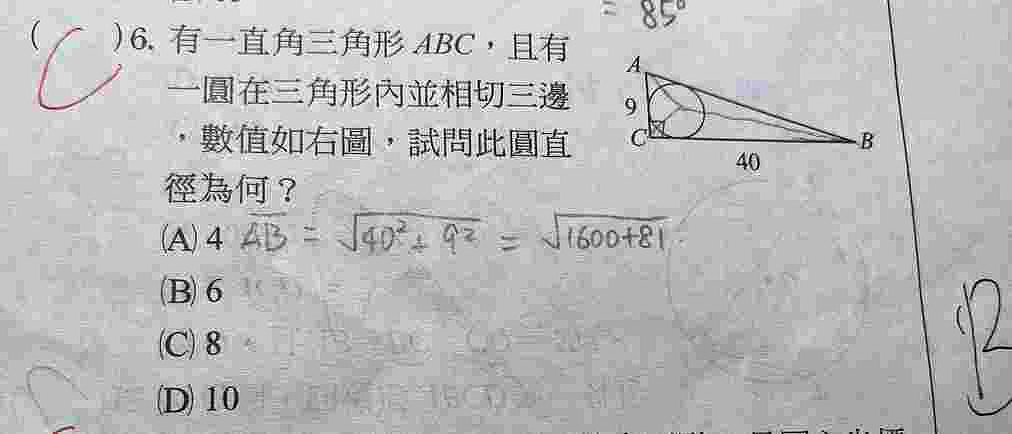 = 85°
( C )6. 有一直角三角形 ABC，且有
一圓在三角形內並相切三邊
，數值如右圖，試問此圓直
徑為何？
A
9
C
B
40
(A) 4 AB = √40² + 9² = √1600+81
(B) 6
(C) 8
(D) 10